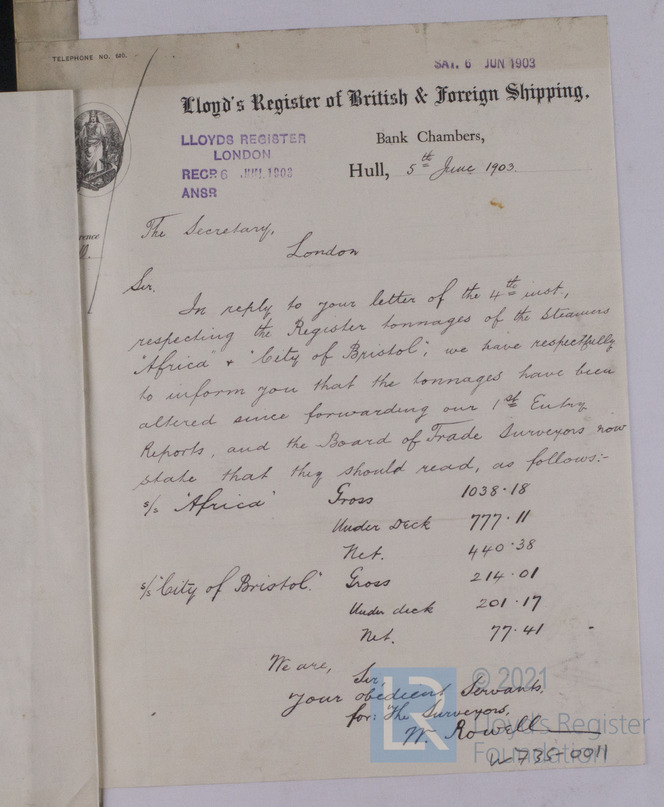 TELEPHONE NO. 640.
SAT. 6 JUN 1903
Lloyd's Register of British & Foreign Shipping.
LLOYDS REGISTER
LONDON
RECD 6 JUN. 1903
ANSR
Bank Chambers,
Hull, 5th June 1903.
The Secretary,
London
Sir,
In reply to your letter of the 4th inst.,
respecting the Register tonnages of the Steamers
"Africa" & "City of Bristol", we have respectfully
to inform you that the tonnages have been
altered since forwarding our 1st Entry
Reports, and the Board of Trade Surveyors now
state that they should read, as follows:-
s/s "Africa" Gross 1038.18
Under Deck 777.11
Net. 440.38
s/s "City of Bristol." Gross 214.01
Under deck 201.17
Net. 77.41
We are, Sir,
Your obedient Servants,
for: The Surveyors,
W. Rowell
LR
© 2021
Lloyd's Register
Foundation
W735-0011